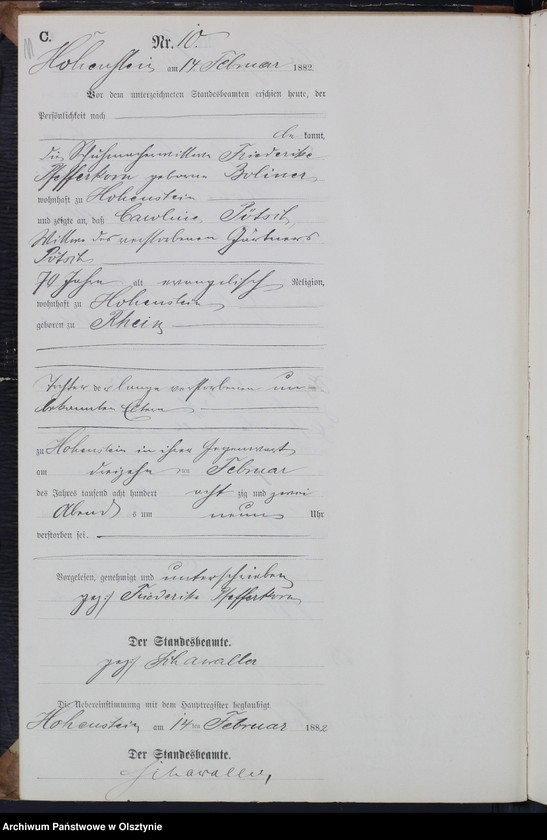 C.
Nr. 10.
Hohenstein am 14 Februar 1882
Vor dem unterzeichneten Standesbeamten erschien heute, der
Persönlichkeit nach
be kannt,
die Schuhmacherwittwe Friederike
Pfefferkorn geborene Boliner
wohnhaft zu Hohenstein
und zeigte an, daß Caroline Pötsch,
Wittwe des verstorbenen Gärtners
Pötsch
70 Jahre alt evangelisch Religion,
wohnhaft zu Hohenstein
geboren zu Rhein
Tochter der lange verstorbenen un-
bekannten Eltern
zu Hohenstein in ihrer Gegenwart
am dreizehn ten Februar
des Jahres tausend acht hundert acht zig und zwei
Abend s um neun Uhr
verstorben sei.
Vorgelesen, genehmigt und unterschrieben
gez: Friederike Pfefferkorn
Der Standesbeamte.
gez:
Die Uebereinstimmung mit dem Hauptregister beglaubigt
Hohenstein, am 14 ten Februar 1882
Der Standesbeamte.
Archiwum Państwowe w Olsztynie